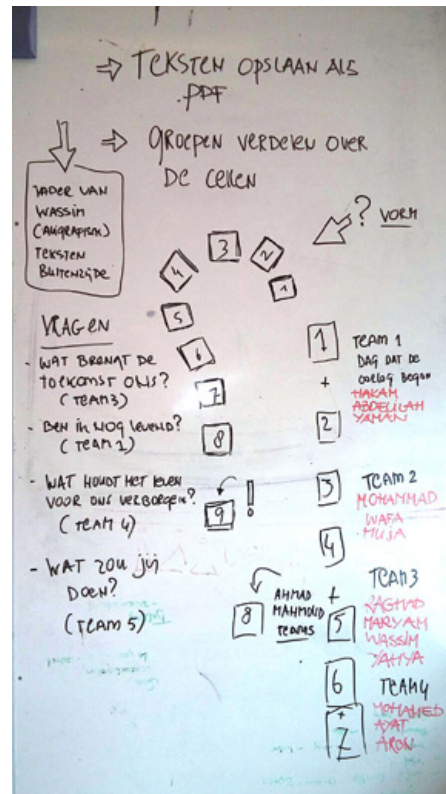 ⇒ TEKSTEN OPSLAAN ALS
.PDF
⇒ GROEPEN VERDELEN OVER
DE CELLEN
VADER VAN
WASSIM
(CALIGRAFISCH)
TEKSTEN
BUITENZIJDE
? VORM
1
2
3
4
5
6
7
8
9 !
VRAGEN
- WAT BRENGT DE
TOEKOMST ONS?
(TEAM 3)
- BEN IK NOG LEVEND?
(TEAM 1)
- WAT HOUDT HET LEVEN
VOOR ONS VERBORGEN?
(TEAM 4)
- WAT ZOU JIJ
DOEN?
(TEAM 5)
1 TEAM 1
DAG DAT DE
OORLOG BEGON
+ HAKAM
ABDELILAH
2 YAMAN
3 TEAM 2
MOHAMMAD
WAFA
4 MUJA
TEAM 3
+ RAGHAD
5 MARYAM
WASSIM
YAHYA
8 AHMAD
MAHMOUD
TEAM 5
6 TEAM 4
+ MOHAMED
7 AYAT
ARON